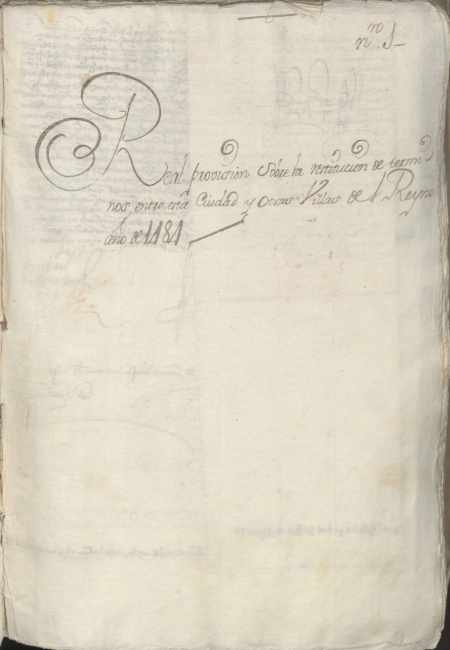 nº. 1
Real provision Sobre la restitucion de termi
nos, entre esta Ciudad y otras Villas de el Reyno
año de 1181